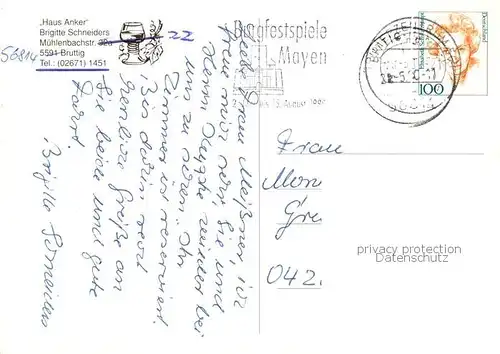 „Haus Anker"
Brigitte Schneiders
Mühlenbachstr. 32a 22
56814
5591 Bruttig
Tel.: (02671) 1451
Burgfestspiele
Mayen
August
Deutschland
100
Liebe Frau Meißner, ich
freue mich sehr Sie und
Herrn wieder bei
uns zu sehen. Ihr
Zimmer ist reserviert.
Bis dahin recht
herzliche Grüße an
Sie beide und gute
Fahrt.
Brigitte Schneiders
Frau
042.
privacy protection
Datenschutz